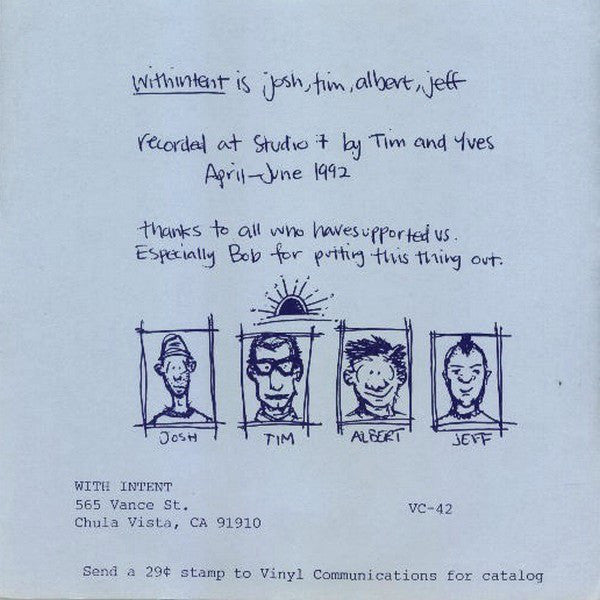 withintent is josh, tim, albert, jeff
recorded at Studio 7 by Tim and Yves
April-June 1992
thanks to all who have supported us.
Especially Bob for putting this thing out.
JOSH TIM ALBERT JEFF
WITH INTENT
565 Vance St. VC-42
Chula Vista, CA 91910
Send a 29¢ stamp to Vinyl Communications for catalog